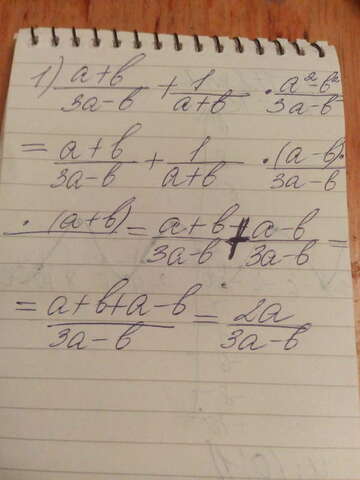 1) (a+b)/(3a-b) + 1/(a+b) · (a²-b²)/(3a-b)
= (a+b)/(3a-b) + 1/(a+b) · (a-b)·/(3a-b)
· (a+b) = (a+b)/(3a-b) + (a-b)/(3a-b) =
= (a+b+a-b)/(3a-b) = 2a/(3a-b)